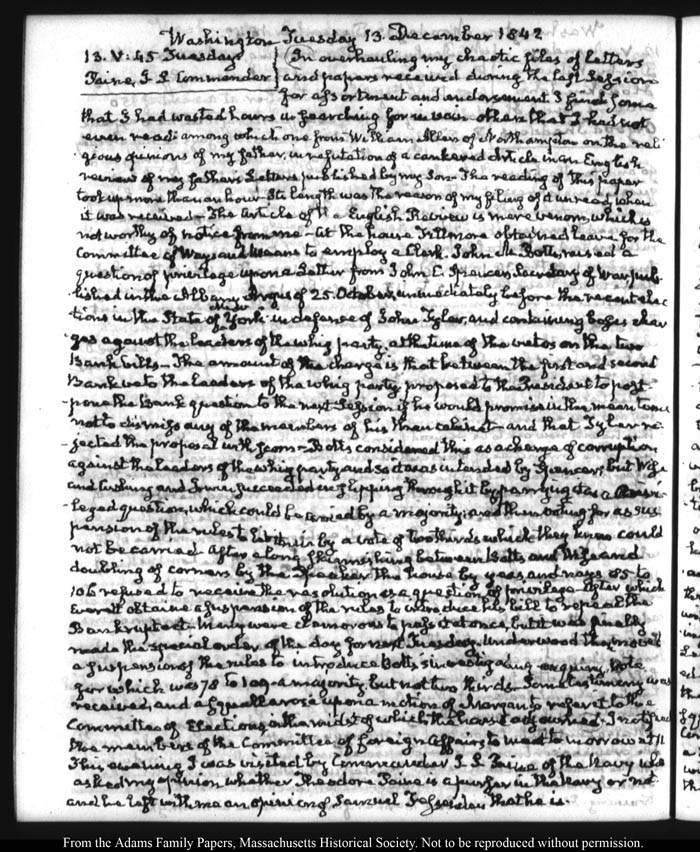 Washington Tuesday 13. December 1842
13. V: 45 Tuesday In overhauling my chaotic files of letters
Paine, T. S. Commander and papers received during the last Session
for assortment and endorsement I find some
that I had wasted hours in searching for in vain others that I had not
even read: among which one from William Allen of Northampton on the reli
gious opinions of my father, in refutation of a cankered article in an English
review of my father's Letters published by my Son. The reading of this paper
took up more than an hour. Its length was the reason of my filing it unread, when
it was received. The article of the English Review is mere venom, which is
not worthy of notice from me. At the house Fillmore obtained leave for the
Committee of Ways and Means to employ a Clerk. John M. Botts, raised a
question of privilege upon a Letter from John C. Spencer, Secretary of War, pub
lished in the Albany Argus of 25. October, immediately before the recent elec
tions in the State of New York in defence of John Tyler, and containing base char
ges against the leaders of the whig party, at the time of the vetos on the two
Bank bills. The amount of the charge is that between the first and second
Bank veto the leaders of the whig party proposed to the President to post
pone the Bank question to the next Session if he would promise in the mean time
not to dismiss any of the members of his then cabinet and that Tyler re
jected the proposal with scorn. Botts considered this as a charge of corruption
against the leaders of the whig party and so it was intended by Spencer, but Wise
and Cushing and Irwin succeeded in slipping through it by parrying it as a privi
leged question, which could be carried by a majority: and then voting for a sus
pension of the rules to by a vote of two thirds which they knew could
not be carried. After a long skirmishing between Botts and Wise and
doubling of corners by the Speaker the house by yeas and nays 85 to
106 refused to receive the resolution as a question of privilege. After which
Everett obtained a suspension of the rules to introduce his bill to repeal the
Bankrupt act. Many were clamorous to pass it at once, but it was finally
made the special order of the day for next Tuesday. Underwood then moved
a suspension of the rules to introduce Botts's investigating enquiry, vote
for which was 78 to 109 a majority but not two thirds. Some testimony was
received, and a squall arose upon a motion of Morgan to refer it to the
Committee of Elections, in the midst of which the house adjourned. I notified
the members of the Committee of foreign Affairs to meet to morrow at 11
This evening I was visited by Commander T. S. Paine of the Navy who
asked my opinion whether Theodore Paine is a purser in the Navy or not
and he left with me an opinion of Samuel Fessenden that he is.
From the Adams Family Papers, Massachusetts Historical Society. Not to be reproduced without permission.